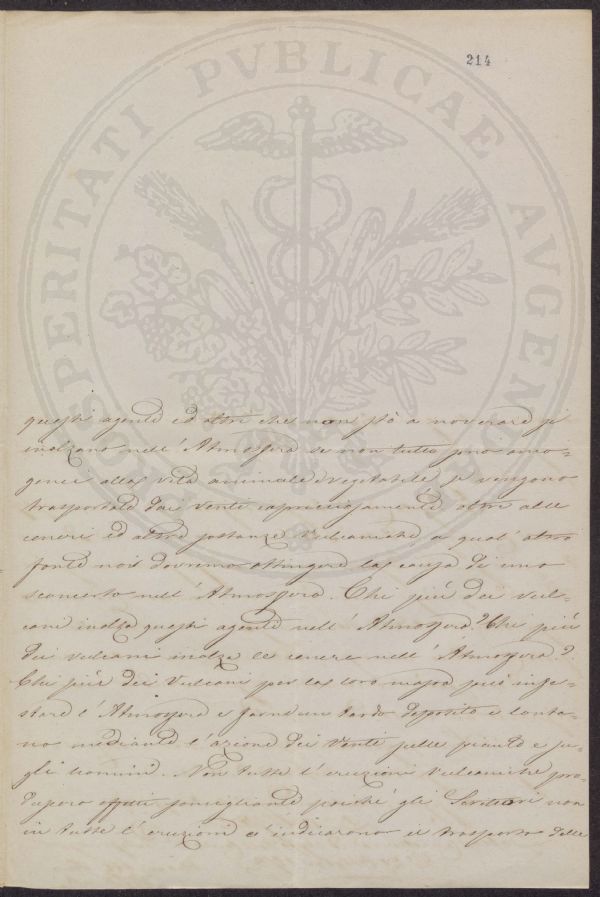 214
PROSPERITATI PVBLICAE AVGENDAE
questi agenti ed altri che non stò a noverare si
inalzano nell'Atmosfera se non tutti sono omo-
genei alla vita animale e vegetabile, se vengono
trasportati dai Venti capricciosamente oltre alle
ceneri ed altre sostanze Vulcaniche, a qual'altra
fonte noi dovremo attingere la causa di uno
sconcerto nell'Atmosfera. Chi più dei Vul-
cani inalza questi agenti nell'Atmosfera? Chi più
dei Vulcani inalza le cenere nell'Atmosfera?
Chi più dei Vulcani per la loro può infe-
stare l'Atmosfera e farne un tardo deposito e lonta-
no mediante l'azione dei Venti sulle piante e su-
gli uomini. Non tutte l'eruzioni Vulcaniche pro-
dussero effetti somiglianti poiché gli Scrittori non
in tutte l'eruzioni c'indicarono il trasporto delle